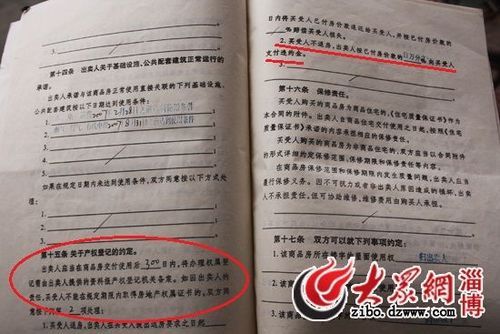 第十四条  出卖人关于基础设施、公共配套建筑正常运行的
承诺。
出卖人承诺与该商品房正常使用直接关联的下列基础设施、
公共配套建筑按以下日期达到使用条件：
1.
2.
3.
4.
5.
如果在规定日期内未达到使用条件，双方同意按以下方式处
理：
1.
2.
3.
第十五条  关于产权登记的约定。
出卖人应当在商品房交付使用后300日内，将办理权属登
记需由出卖人提供的资料报产权登记机关备案。如因出卖人的
责任，买受人不能在规定期限内取得房地产权属证书的，双方同
意按下列第2项处理：
1.买受人退房，出卖人在买受人提出退房要求之日起
日内将买受人已付房价款退还给买受人，并按已付房价款的
%赔偿买受人损失。
2.买受人不退房，出卖人按已付房价款的 向买受人
支付违约金。
3.
第十六条  保修责任。
买受人购买的商品房为商品住宅的，《住宅质量保证书》作为
本合同的附件。出卖人自商品住宅交付使用之日起，按照《住宅
质量保证书》承诺的内容承担相应的保修责任。
买受人购买的商品房为非商品住宅的，双方应当以合同附件
的形式详细约定保修范围、保修期限和保修责任等内容。
在商品房保修范围和保修期限内发生质量问题，出卖人应当
履行保修义务。因不可抗力或者非出卖人原因造成的损坏，出卖
人不承担责任，但可协助维修，维修费用由购买人承担。
第十七条  双方可以就下列事项约定：
1.该商品房所在楼宇的屋面使用权
2.该商品房
3.该商
4.
大众网 淄博
zibo.dzwww.com